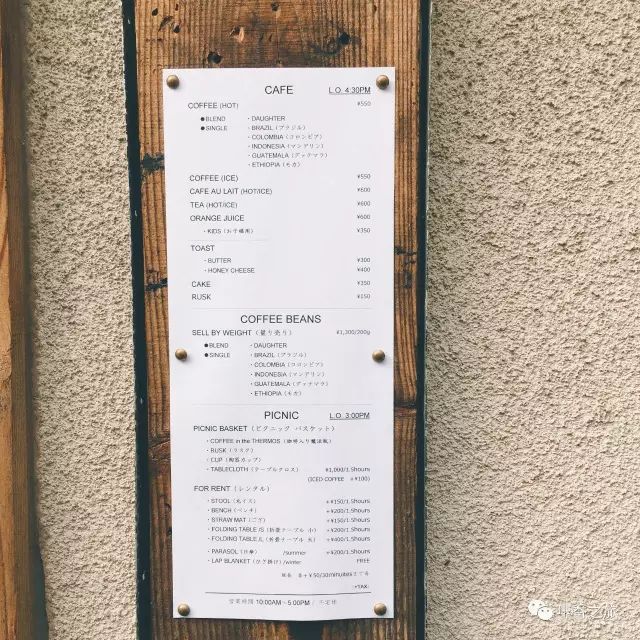 CAFE L.O. 4:30PM
COFFEE (HOT) ¥550
●BLEND ・DAUGHTER
●SINGLE ・BRAZIL (ブラジル)
・COLOMBIA (コロンビア)
・INDONESIA (マンデリン)
・GUATEMALA (グァテマラ)
・ETHIOPIA (モカ)
COFFEE (ICE) ¥550
CAFE AU LAIT (HOT/ICE) ¥600
TEA (HOT/ICE) ¥600
ORANGE JUICE ¥600
・KIDS (お子様用) ¥350
TOAST
・BUTTER ¥300
・HONEY CHEESE ¥400
CAKE ¥350
RUSK
COFFEE BEANS
SELL BY WEIGHT (量り売り) ¥1,300/200g
●BLEND ・DAUGHTER
●SINGLE ・BRAZIL (ブラジル)
・COLOMBIA (コロンビア)
・INDONESIA (マンデリン)
・GUATEMALA (グァテマラ)
・ETHIOPIA (モカ)
PICNIC L.O. 3:00PM
PICNIC BASKET (ピクニック バスケット)
・COFFEE in the THERMOS (珈琲入り魔法瓶)
・RUSK (ラスク)
・CUP (陶器カップ)
・TABLECLOTH (テーブルクロス) ¥1,000/1.5hours
(ICED COFFEE +¥100)
FOR RENT (レンタル)
・STOOL (丸イス) +¥150/1.5hours
・BENCH (ベンチ) +¥200/1.5hours
・STRAW MAT (ござ) +¥150/1.5hours
・FOLDING TABLE /S (折畳テーブル 小) +¥200/1.5hours
・FOLDING TABLE /L (折畳テーブル 大) +¥400/1.5hours
・PARASOL (日傘) /summer +¥200/1.5hours
・LAP BLANKET (ひざ掛け) /winter FREE
延長 各+¥50/30minuites
+TAX-
営業時間 10:00AM～5:00PM / 不定休